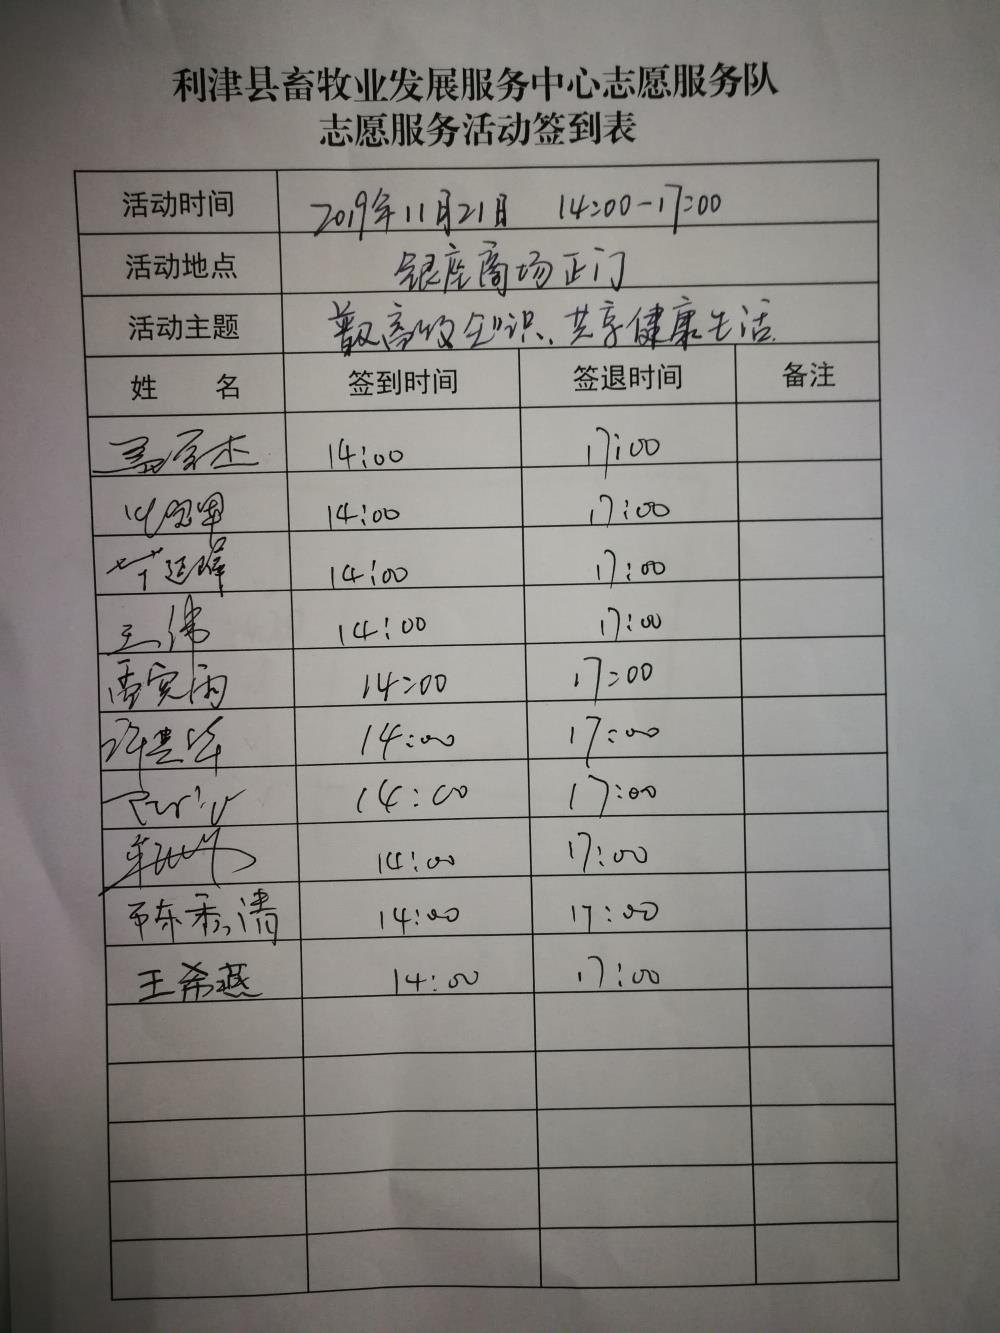 利津县畜牧业发展服务中心志愿服务队
志愿服务活动签到表
活动时间 2019年11月21日 14:00-17:00
活动地点 银座商场正门
活动主题 普及畜牧知识、共享健康生活
姓 名 签到时间 签退时间 备注
14:00 17:00
14:00 17:00
14:00 17:00
王伟 14:00 17:00
14:00 17:00
14:00 17:00
14:00 17:00
14:00 17:00
陈秀清 14:00 17:00
王希燕 14:00 17:00